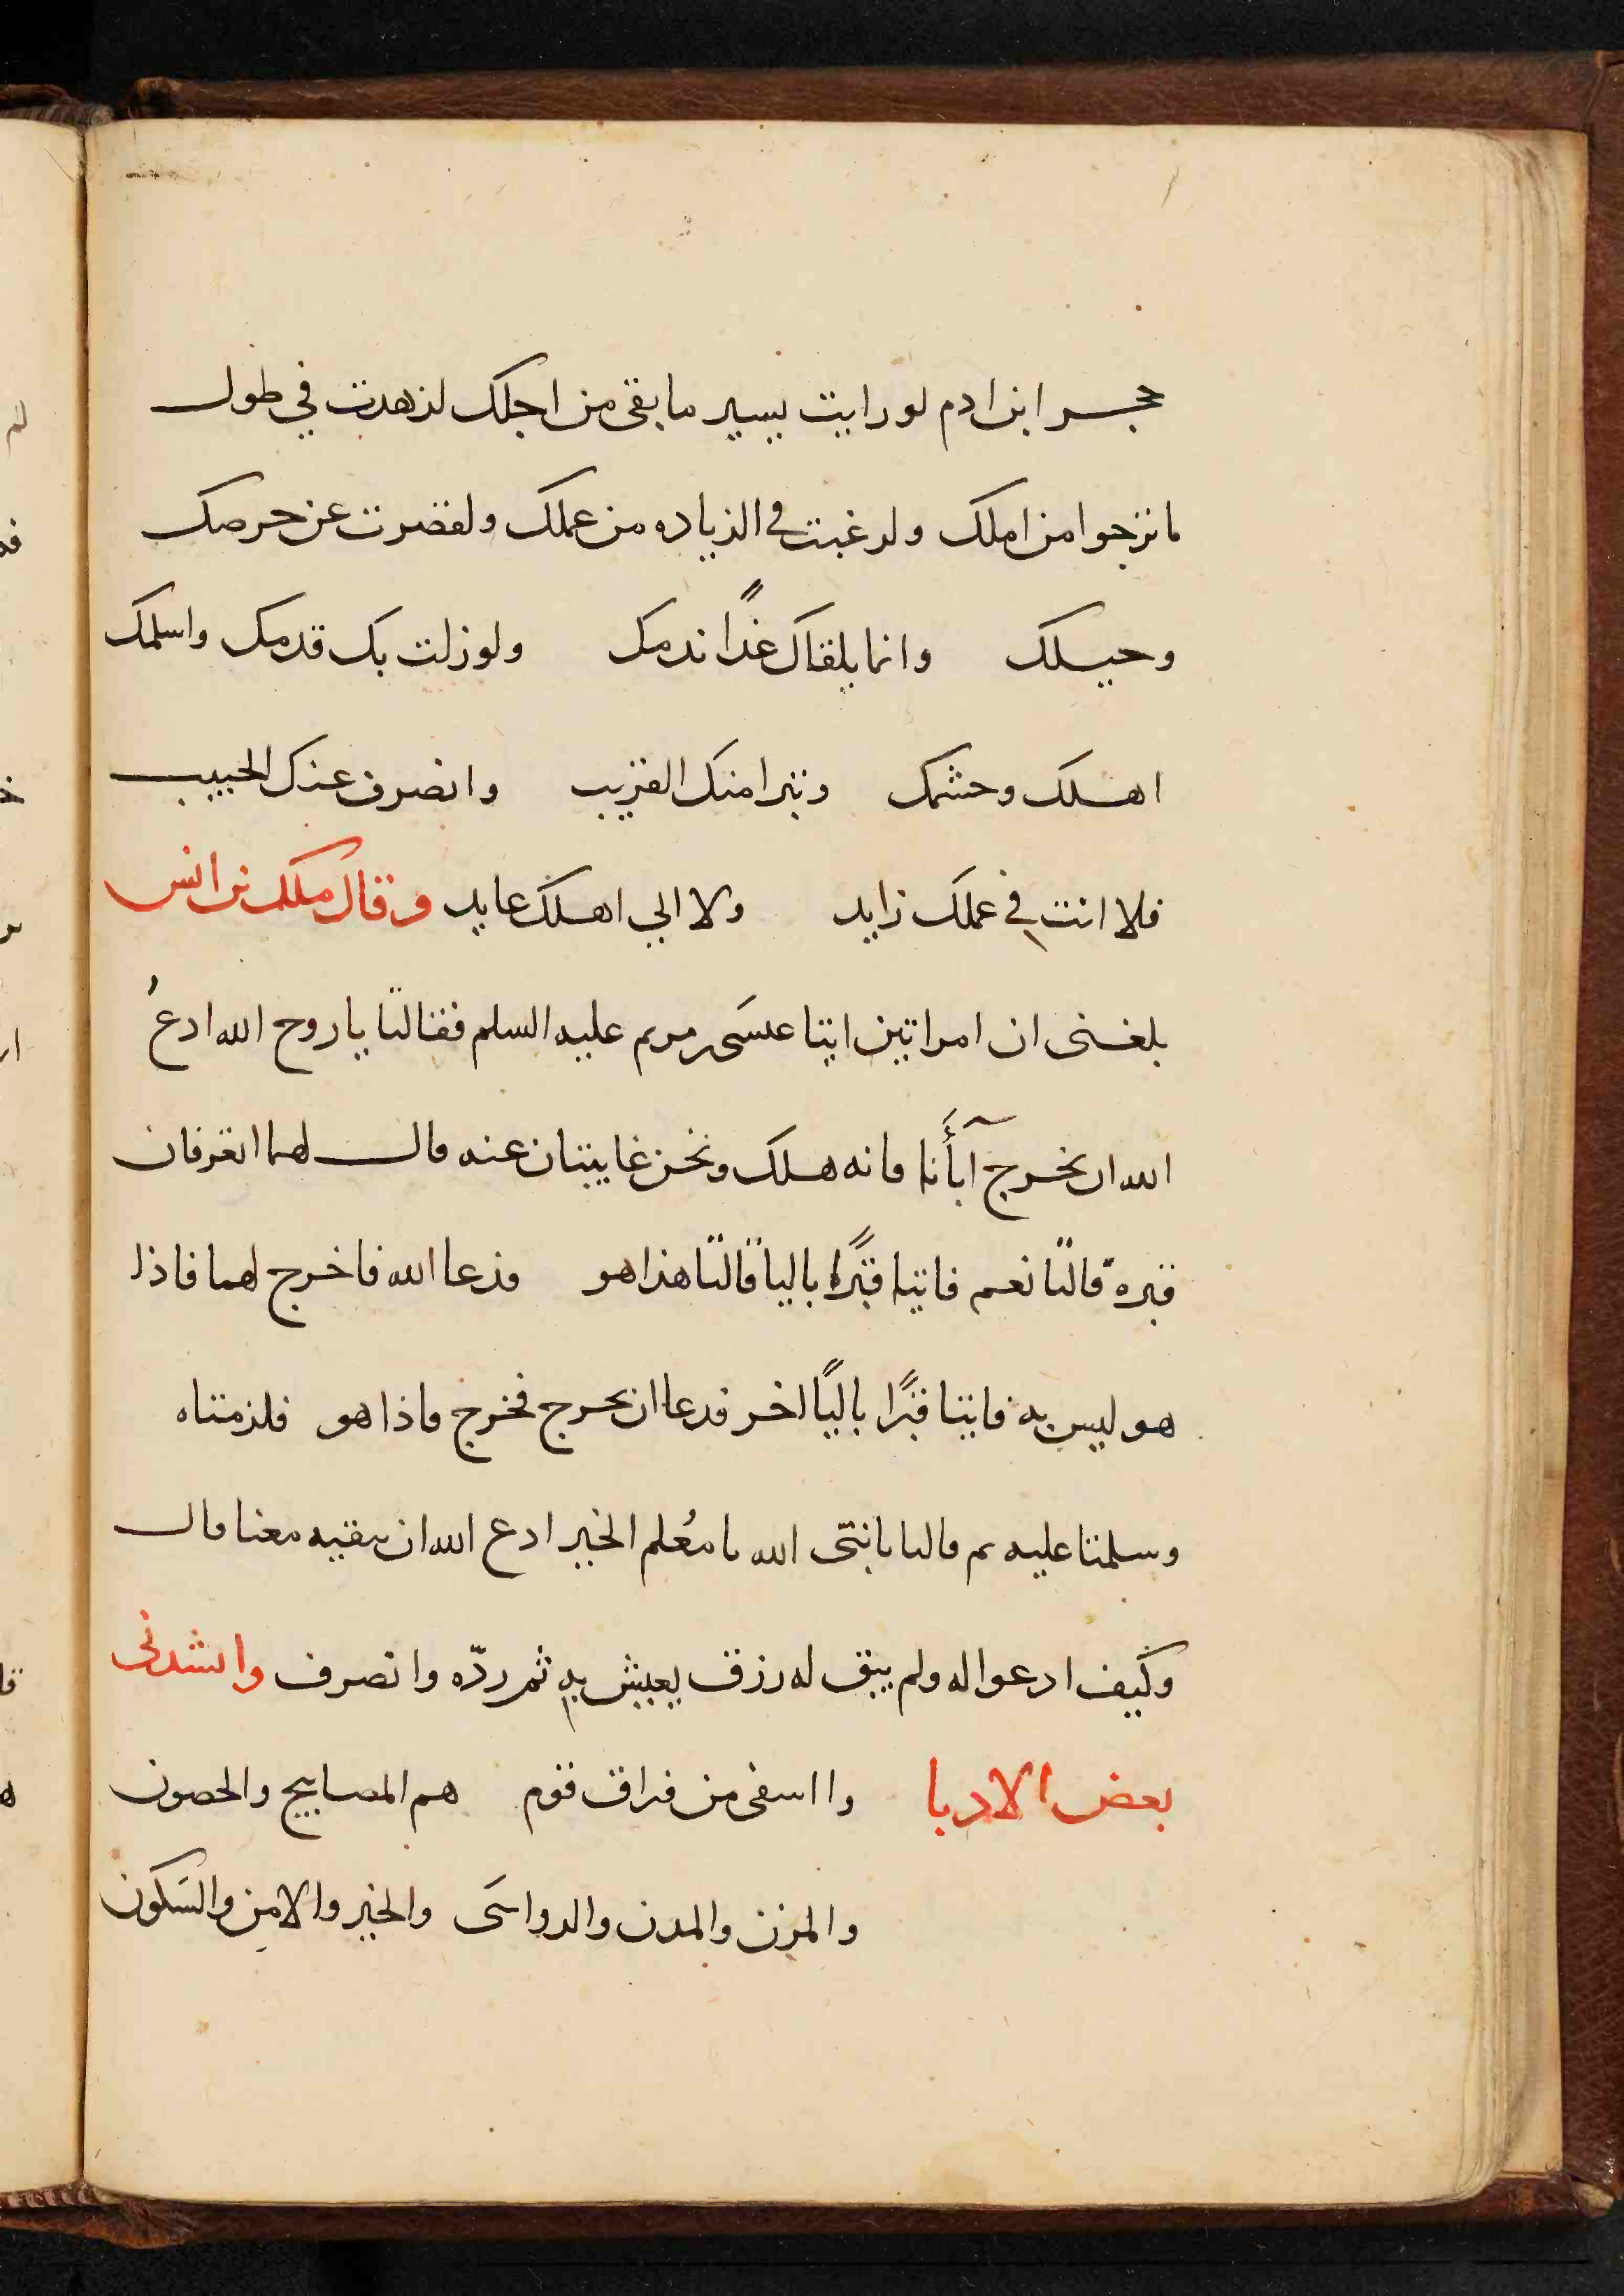 حجر ابن ادم لو رايت يسير ما بقى من اجلك لزهدت في طول
ما ترجوا من املك ولرغبت في الزياده من عملك ولقصرت عن حرصك
وحيلك وانما يلقاك غدًا ندمك ولو زلت بك قدمك واسلمك
اهلك وحشمك وتبرا منك القريب وانصرف عنك الحبيب
فلا انت في عملك زايد ولا الي اهلك عايد وقال ملك بن انس
بلغنى ان امراتين اتيا عيسَى بن مريم عليه السلم فقالتا يا روح الله ادعُ
الله ان يخرج آبأَنا فانه هلك ونحن غايبتان عنه قال لهما اتعرفان
قبره قالتا نعم فاتيا قبًرا باليا قالتا هذا هو فدعا الله فاخرج لهما فاذا
هو ليس به فاتيا قبًرا باليًا اخر فدعا ان يخرج فخرج فاذا هو فلزمتاه
وسلمتا عليه ثم قالتا يا نبى الله يا مُعلم الخير ادع الله ان يبقيه معنا قال
وكيف ادعوا له ولم يبق له رزق يعيش به ثم ردّه وانصرف وانشدنى
بعض الادبا وا اسفى من فراق قوم هم المصابيح والحصون
والمزن والمدن والرواسَى والخير والامن والسَكون